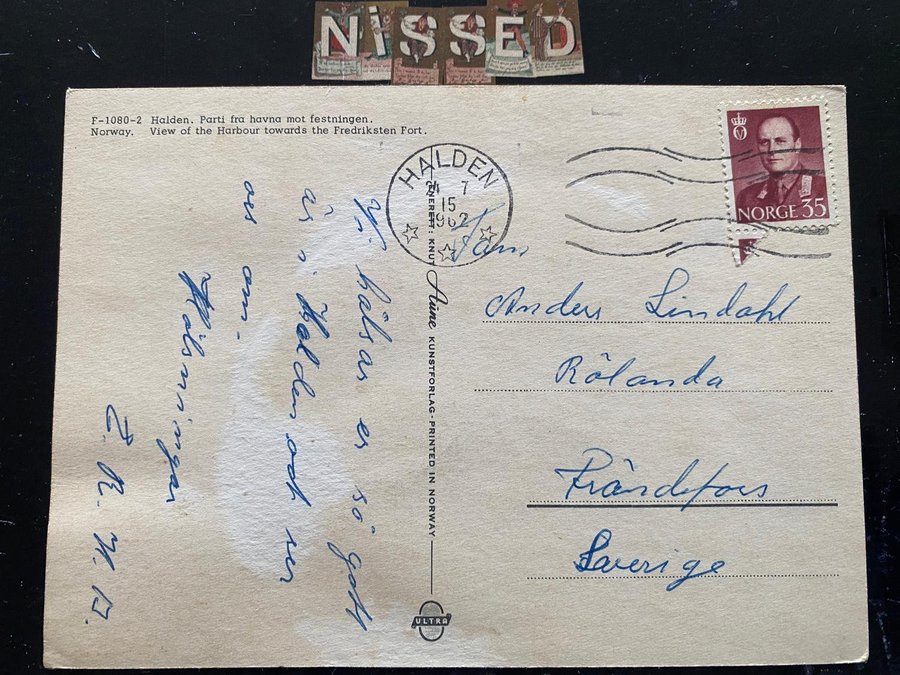 NiSSED
F-1080-2 Halden. Parti fra havna mot festningen.
Norway. View of the Harbour towards the Fredriksten Fort.
HALDEN
7
15
1962
NORGE 35
ENERETT: KNUT Aune KUNSTFORLAG - PRINTED IN NORWAY
ULTRA
Vi hälsar er så gott
är i Halden och ser
oss om.
Hälsningar
Fam
Anders Lindahl
Rölanda
Frändefors
Sverige